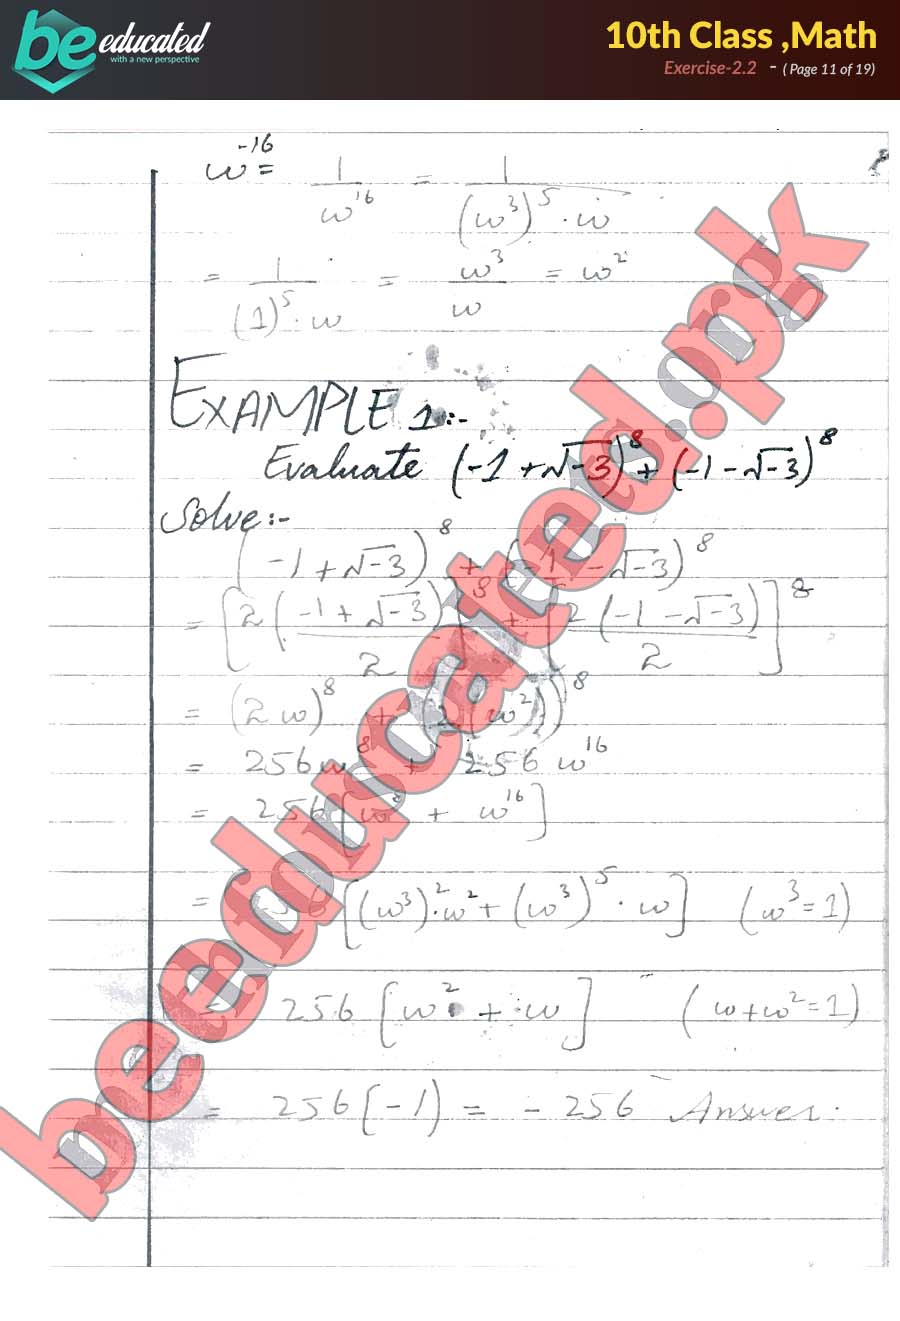 be educated
with a new perspective
10th Class ,Math
Exercise-2.2 - ( Page 11 of 19)
ω⁻¹⁶ = 1/ω¹⁶ = 1/((ω³)⁵ · ω)
= 1/((1)⁵ · ω) = ω³/ω = ω²
EXAMPLE 1:-
Evaluate (-1 + √-3)⁸ + (-1 - √-3)⁸
Solve:-
(-1 + √-3)⁸ + (-1 - √-3)⁸
= [2(-1 + √-3)/2]⁸ + [2(-1 - √-3)/2]⁸
= (2ω)⁸ + (2(ω²))⁸
= 256ω⁸ + 256 ω¹⁶
= 256[ω⁸ + ω¹⁶]
= 256[(ω³)²·ω² + (ω³)⁵ · ω] (ω³=1)
= 256[ω² + ω] (ω+ω²=1)
= 256(-1) = -256 Answer.
beeducated.pk